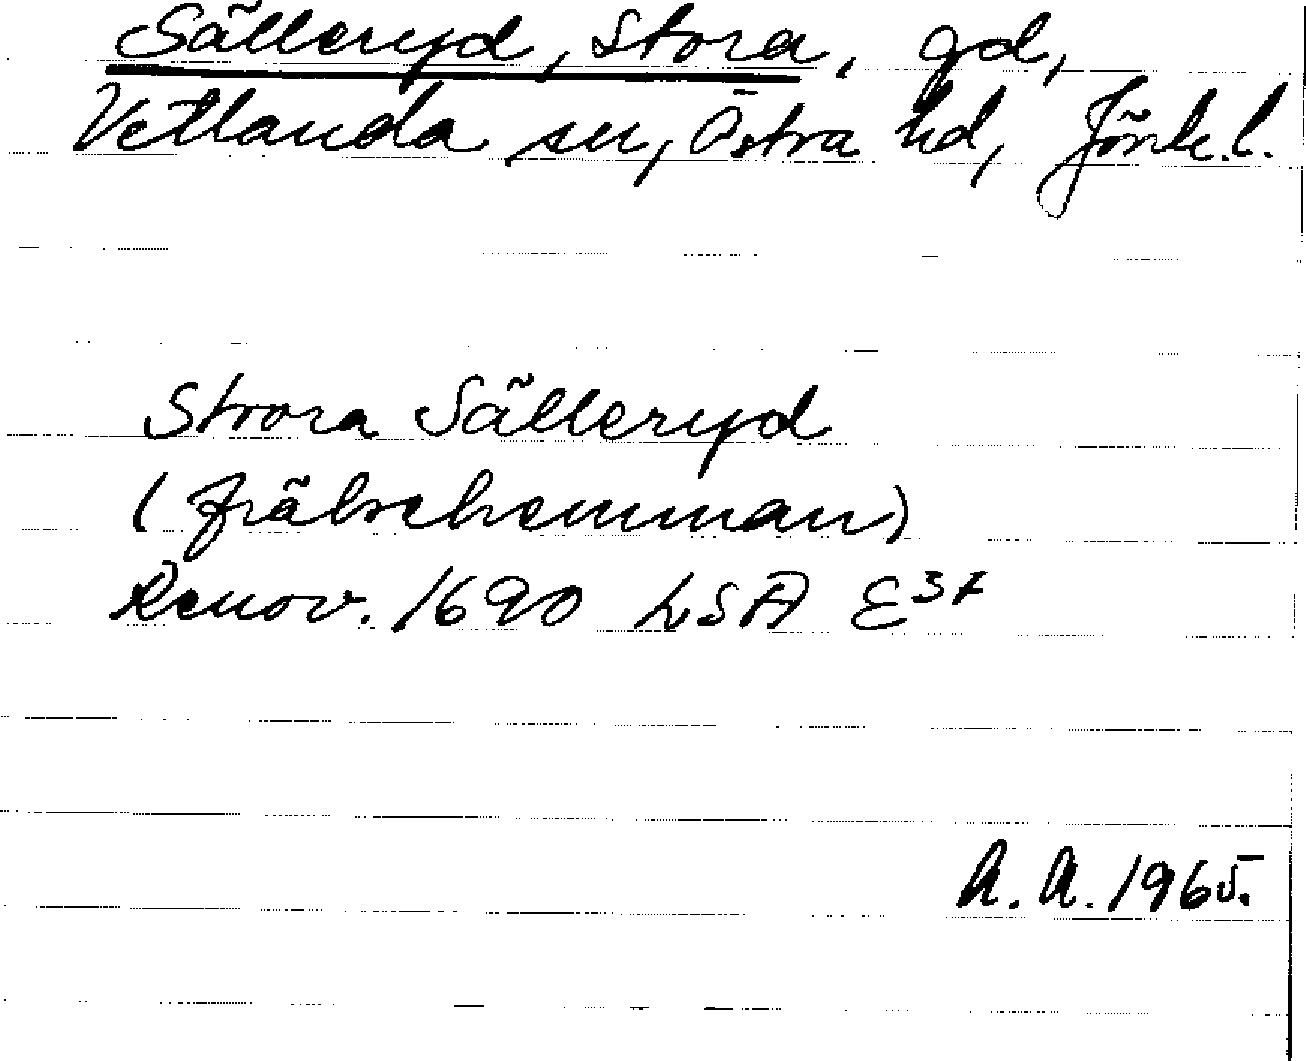 Sälleryd, Stora, gd,
Vetlanda sn, Östra hd, Jönk.l.
Stora Sälleryd
(frälsehemman)
Renov. 1690 LSA E37
A.A. 1965.